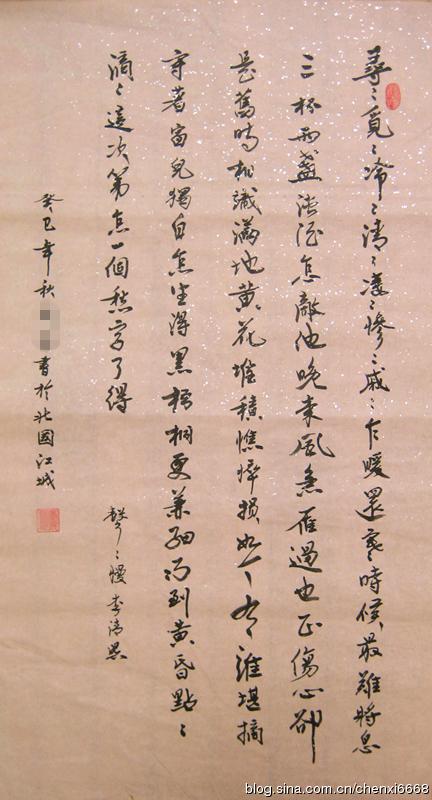 尋〻覓〻冷〻清〻凄〻慘〻戚〻乍暖還寒時候最難將息
三杯兩盞淡酒怎敵他晚來風急雁過也正傷心卻
是舊時相識滿地黃花堆積憔悴損如今有誰堪摘
守著窗兒獨自怎生得黑梧桐更兼細雨到黃昏點〻
滴〻這次第怎一個愁字了得
聲〻慢李清照
癸巳年秋
書於北國江城
blog.sina.com.cn/chenxi6668